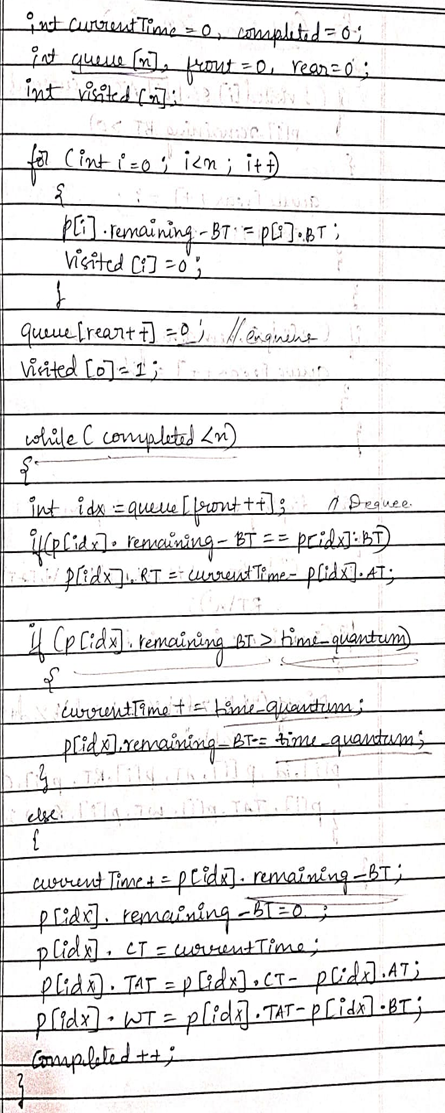 int currentTime = 0, completed = 0;
int queue [n], front = 0, rear = 0;
int visited [n];
for (int i = 0; i<n; i++)
{
p[i].remaining-BT = p[i].BT;
visited [i] = 0;
}
queue[rear++] = 0; // enqueue
visited [0] = 1;
while ( completed < n)
{
int idx = queue[front++]; // Dequee.
if(p[idx].remaining-BT == p[idx].BT)
p[idx].RT = currentTime - p[idx].AT;
if (p[idx].remaining BT > time-quantum)
{
currentTime += time-quantum;
p[idx].remaining-BT -= time-quantum;
}
else
{
currentTime += p[idx].remaining-BT;
p[idx].remaining-BT = 0;
p[idx].CT = currentTime;
p[idx].TAT = p[idx].CT - p[idx].AT;
p[idx].WT = p[idx].TAT - p[idx].BT;
Completed ++;
}